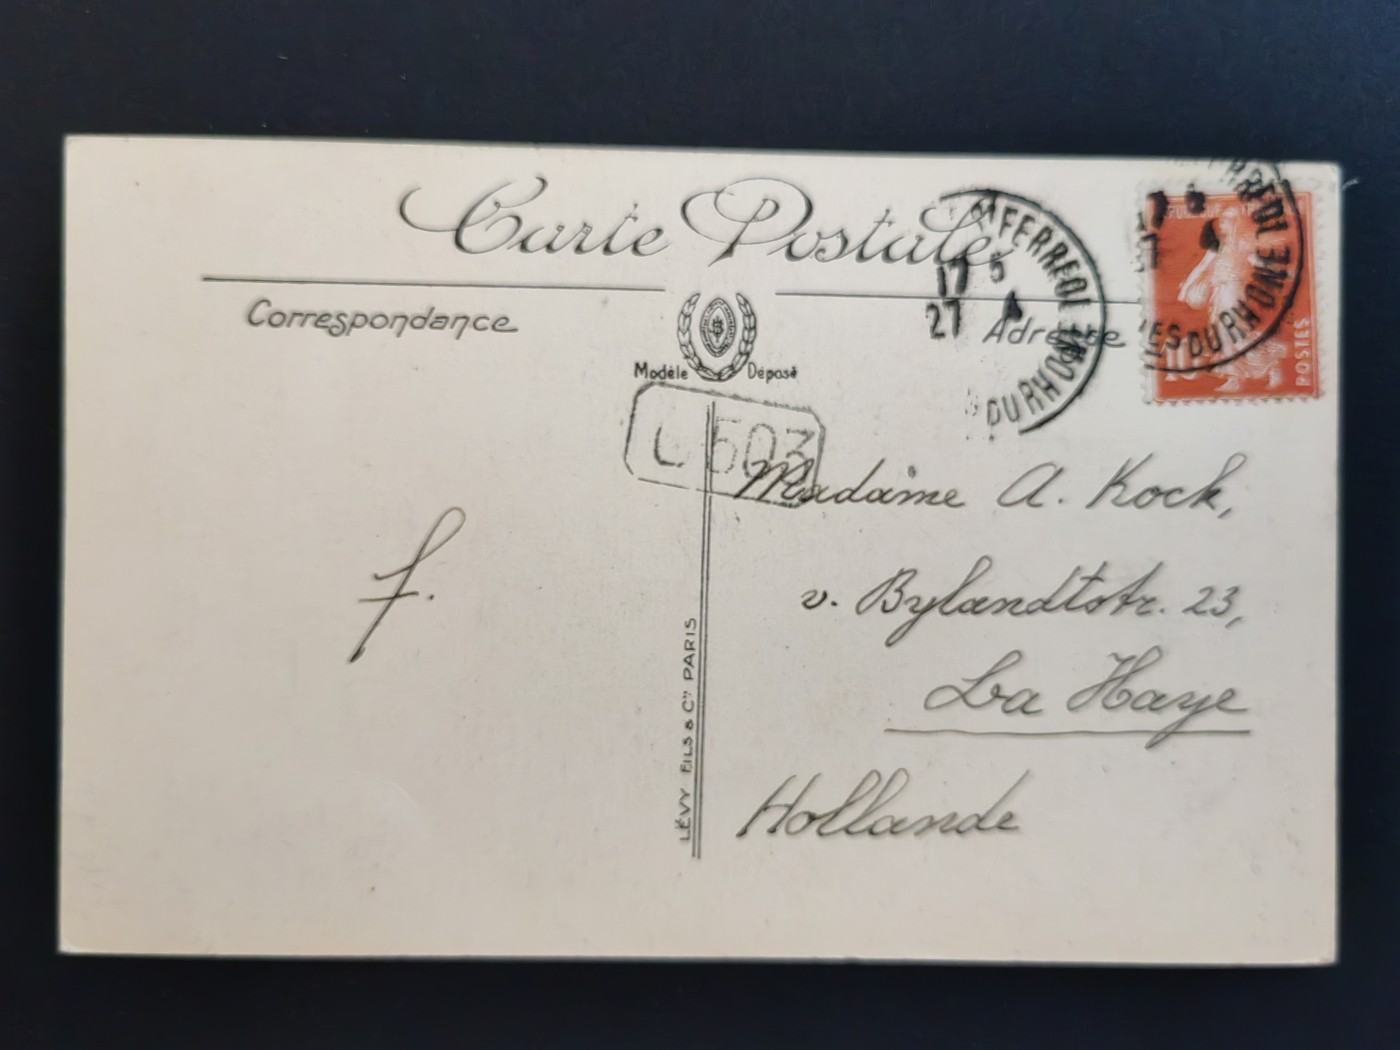 Carte Postale
Correspondance
Adresse
Modèle Déposé
Sᵗ FERREOL
DU RHONE
17 5
27 4
FERREOL
DU RHONE
POSTES
503
Madame A. Kock,
v. Bylandtstr. 23,
La Haye
Hollande
f.
LÉVY FILS & Cⁱᵉ PARIS